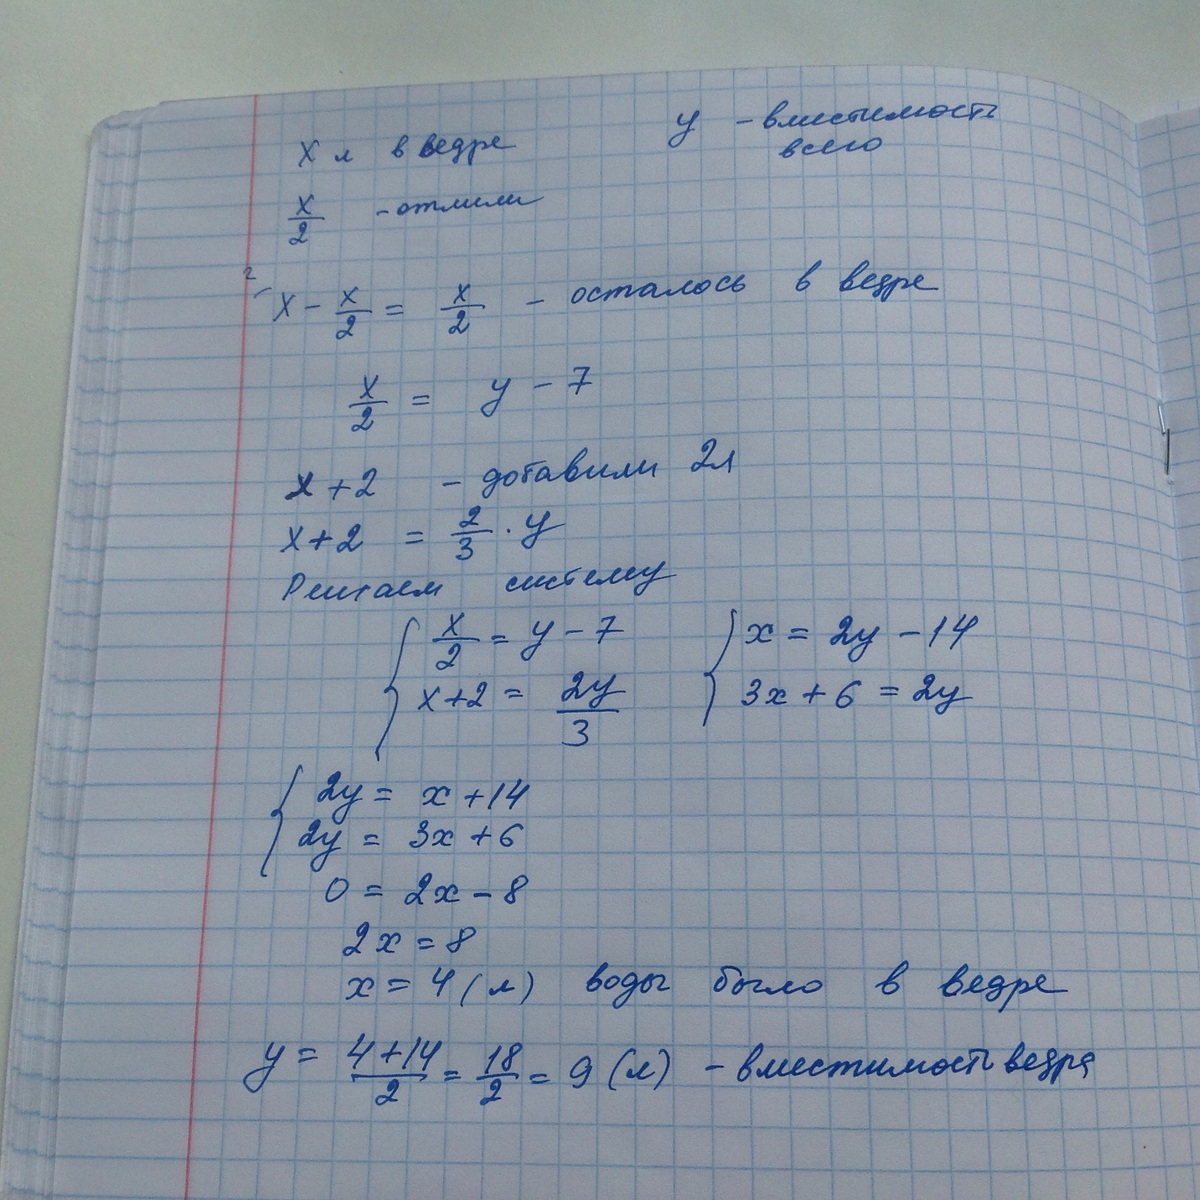 x л в ведре
y - вместимость
всего
x/2 - отлили
2
x - x/2 = x/2 - осталось в ведре
x/2 = y - 7
x + 2 - добавили 2л
x + 2 = 2/3 · y
Решаем систему
{ x/2 = y - 7
x + 2 = 2y/3
{ x = 2y - 14
3x + 6 = 2y
{ 2y = x + 14
2y = 3x + 6
0 = 2x - 8
2x = 8
x = 4 (л) воды было в ведре
y = 4+14/2 = 18/2 = 9 (л) - вместимость ведра